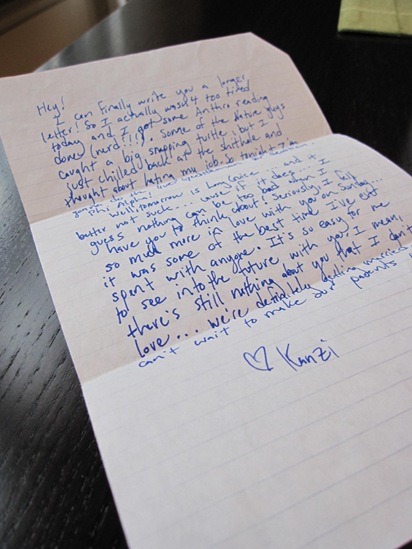 Hey!
I can finally write you a longer
letter! So I actually wasn't too tired
today and I got some Anthro reading
done (nerd!!). Some of the dative guys
caught a big snapping turtle, but I
just chilled back at the shithole and
thought about hating my job. So tonight I'm
well, tomorrow is hay (nice... and it
better not suck... well, if it does... I
guess nothing can be too bad when I
have you to think about! Seriously, I fell
so much more in love with you on Sunday...
it was some of the best time I've ever
spent with anyone. It's so easy for me
to see into the future with you. I mean,
there's still nothing about you that I don't
love... we're definitely getting married. I
can't wait to make our parents
♡ Kanzi